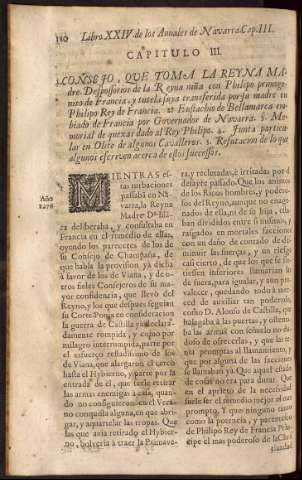 180 Libro XXIV. de los Annales de Navarra, Cap. III.
CAPITULO III.
CONSEJO, QUE TOMA LA REYNA MA-
dre. Despossorios de la Reyna niña con Philipo primoge-
nito de Francia, y tutela suya transferida por su madre en
Philipo Rey de Francia. 2. Eustachio de Bellamarca en-
biado de Francia por Governador de Navarra. 3. Me-
morial de quexas dado al Rey Philipo. 4. Junta particu-
lar en Olite de algunos Cavalleros. 5. Refutacion de lo que
algunos escriven acerca de estos successos.
Año
1276
MIENTRAS es-
tas turbaciones
passaba en Na-
varra, la Reyna
Madre Dª
deliberaba, y consultaba en
Francia en el remedio de ellas,
oyendo los pareceres de los de
su Consejo de Champaña, de
que habla la provision, ya dicha
à favor de los de Viana, y de o-
tros fieles Consejeros de su ma-
yor confidencia, que llevò del
Reyno, y los que despues seguian
su Corte. Ponga en consideracion
la guerra de Castilla ya declara-
damente rompida, y como por
milagro interrumpida, parte por
el esfuerço
de Viana, que alargaron el cerco
hasta el Hybierno, y parte por la
entrada de èl, que suele retirar
las armas enemigas à casa, quan-
do no consiguieron en el Vera-
no conquista alguna, en que abri-
gar, y aquartelar las tropas. Que
las que avia retirado el Hybier-
no, bolveria à traer la Primave-
ra, y recluradas, è irritadas por el
delayte passado. Que los animos
de los Ricos hombres, y podero-
sos del Reyno, aunque no enage-
nados de ella, ni de su hija, esta-
ban divididos entre sì mismos, y
raigados en mortales facciones
con un daño de contado de dis-
minuir las fuerças, y un riesgo
casi cierto, de que los que se sin-
tiessen inferiores llamarian de
de fuera, para igualar, y aun pre-
valecer, quedando todo à mer-
ced de auxiliar tan poderoso,
como D. Alonso de Castilla, que
holgaba à las puertas, y ostenta-
ba las armas con semblo no du-
doso de ofrecerlas, y que las te-
nia promptas al llamamiento, si
que por alguna de las facciones
se llamaban yà. Que aquel estado
de cosas no era para durar. Que
en el aprieto de la necesidad
suele ser el remedio mejor el mas
prompto. Y que ninguno tanto
como la potencia, y parentesco
de Philipo Rey de Francia Prin-
cipe el mas poderoso de la Chris-
tiandad